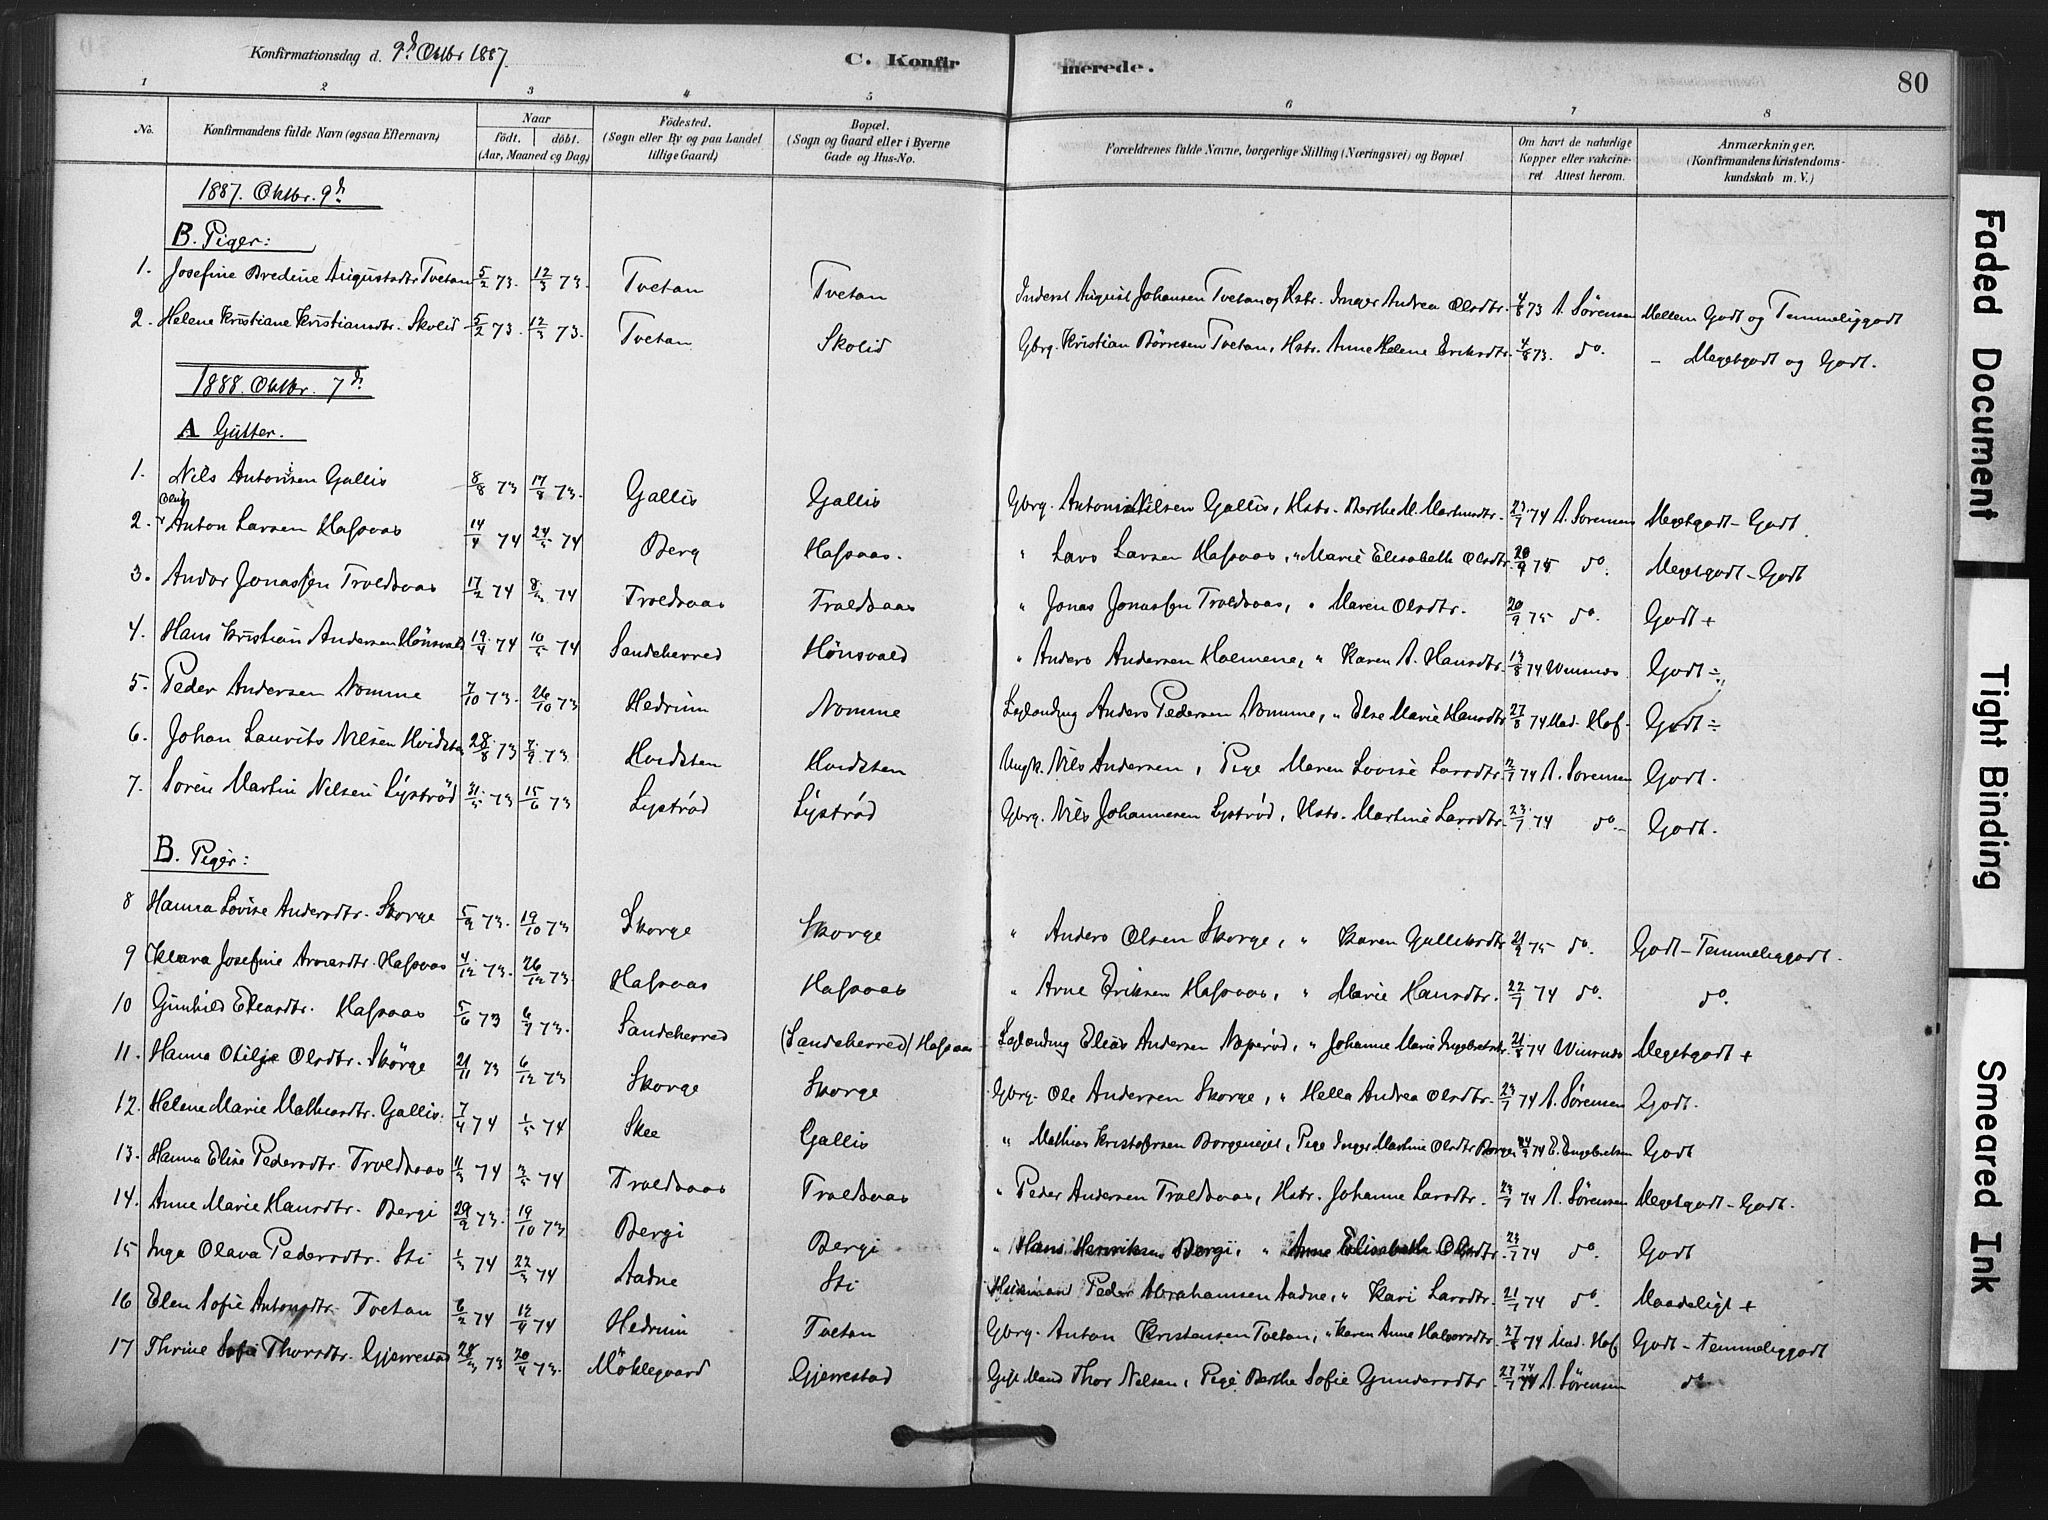 Konfirmationsdag d. 9d Oktbr 1887. C. Konfirmerede. 80
1 2 3 4 5 6 7 8
No. Konfirmandens fulde Navn (ogsaa Efternavn) Naar født. døbt. (Aar, Maaned og Dag) Fødested. (Sogn eller By og paa Landet tillige Gaard) Bopæl. (Sogn og Gaard eller i Byerne Gade og Hus-No. Forældrenes fulde Navne, borgerlige Stilling (Næringsvei) og Bopæl Om havt de naturlige Kopper eller vakcineret Attest herom. Anmærkninger. (Konfirmandens Kristendomskundskab m. V.)
1887. Oktbr. 9d
B. Piger:
1. Josefine Bredine Augustsdtr Tvetan 5/2 73. 12/3 73. Tvetan Tvetan Inderst August Johansen Tvetan og Hstr. Inger Andrea Olsdtr. 4/8 73 A. Sørensen Mellem Godt og Temmeliggodt
2. Helene Kristiane Kristiansdtr. Skolid 5/2 73. 12/3 73. Tvetan Skolid Gbrg. Kristian Børresen Tvetan, Hstr. Anne Helene Eriksdtr. 4/8 73. do. – Megetgodt og Godt.
1888. Oktbr. 7d.
A Gutter.
1. Nils Antonisen Gallis 8/8 73 17/8 73. Gallis Gallis Gbrg. Antonis Nilsen Gallis, Hstr. Berthe M. Martinsdtr. 23/7 74 A. Sørensen Megetgodt – Godt.
2. Oluf Anton Larsen Hafsaas 14/4 74 24/5 74 Berg Hafsaas. " Lars Larsen Hafsaas, " Marie Elisabeth Olsdtr. 20/9 75 do. Megetgodt – Godt
3. Andor Jonassen Troldsaas 17/2 74 8/3 74 Troldsaas Troldsaas " Jonas Jonassen Troldsaas, " Maren Olsdtr. 20/9 75 do. Godt +
4. Hans Kristian Andersen Hønsvald 19/4 74 10/5 74 Sandeherred Hønsvald " Anders Andersen Holmene, " Karen A. Hansdtr. 13/8 74 Winsnes Godt ÷
5. Peder Andersen Nomme 7/10 73 26/10 73 Hedrum Nomme Leglending Anders Pedersen Nomme, " Else Marie Hansdtr 27/8 74 Mad. Hof – Godt ÷
6. Johan Laurits Nilsen Hvidsten 28/8 73 7/9 73 Hvidsten Hvidsten Ungk. Nils Andersen, Pige Maren Lovise Larsdtr. 74 A. Sørensen Godt.
7. Søren Martin Nilsen Lystrød 31/5 73 15/6 73 Lystrød Lystrød Gbrg. Nils Johannesen Lystrød, Hstr. Martine Larsdtr. 23/7 74 do. – Godt.
B. Piger:
8 Hanna Lovise Andersdtr. Skorge 5/9 73. 19/10 73 Skorge Skorge " Anders Olsen Skorge, " Karen Gulliksdtr 21/9 75 do. Godt – Temmeliggodt.
9 Klara Josefine Arnesdtr. Hafsaas 4/12 73. 26/12 73. Hafsaas Hafsaas " Arne Eriksen Hafsaas, " Marie Hansdtr. 22/7 74 do. do.
10 Gunhild Eliasdtr. Hafsaas 5/6 73 6/7 73. Sandeherred (Sandeherred) Hafsaas Leglending Elias Andersen Napsrød, " Johanne Marie Ingebretsdtr. 21/8 74 Winsnes Megetgodt +
11. Hanna Otilje Olsdtr. Skorge 21/11 73 6/12 73 Skorge Skorge Gbrg. Ole Andersen Skorge, " Hella Andrea Olsdtr. 23/7 74 A. Sørensen Godt.
12. Helene Marie Mathiasdtr. Gallis. 7/4 74 1/5 74 Skee Gallis " Mathias Kristofersen Borgeneiet, Pige Inger Martine Olsdtr Borge 24/9 74 E. Engebretsen Godt
13. Hanna Elise Pedersdtr. Troldsaas 11/3 74 3/5 74 Troldsaas Troldsaas " Peder Andersen Troldsaas, Hstr. Johanne Larsdtr. 23/7 74 A. Sørensen Megetgodt – Godt.
14. Anne Marie Hansdtr. Bergi 29/9 73. 19/10 73. Bergi Bergi " Hans Henriksen Bergi, " Anne Elisabeth Olsdtr. 23/7 74 do. Godt
15 Inga Olava Pedersdtr. Sti 1/3 74 22/3 74 Aadne Sti Husmand Peder Abrahamsen Aadne, " Kari Larsdtr. 21/7 74 do. Maadeligt +
16 Elen Sofie Antonsdtr. Tvetan 6/2 74 12/4 74 Hedrum Tvetan Gbrg. Anton Kristensen Tvetan, " Karen Anne Halvorsdtr. 27/8 74 Mad. Hof Godt – Temmeliggodt
17 Thrine Sofie Thorsdtr. Gjerrestad 28/3 73 20/4 73. Møklegaard Gjerrestad Gift Mand Thor Nilsen, Pige Berthe Sofie Gundersdtr. 27/7 74 A. Sørensen do
Faded Document
Tight Binding
Smeared Ink